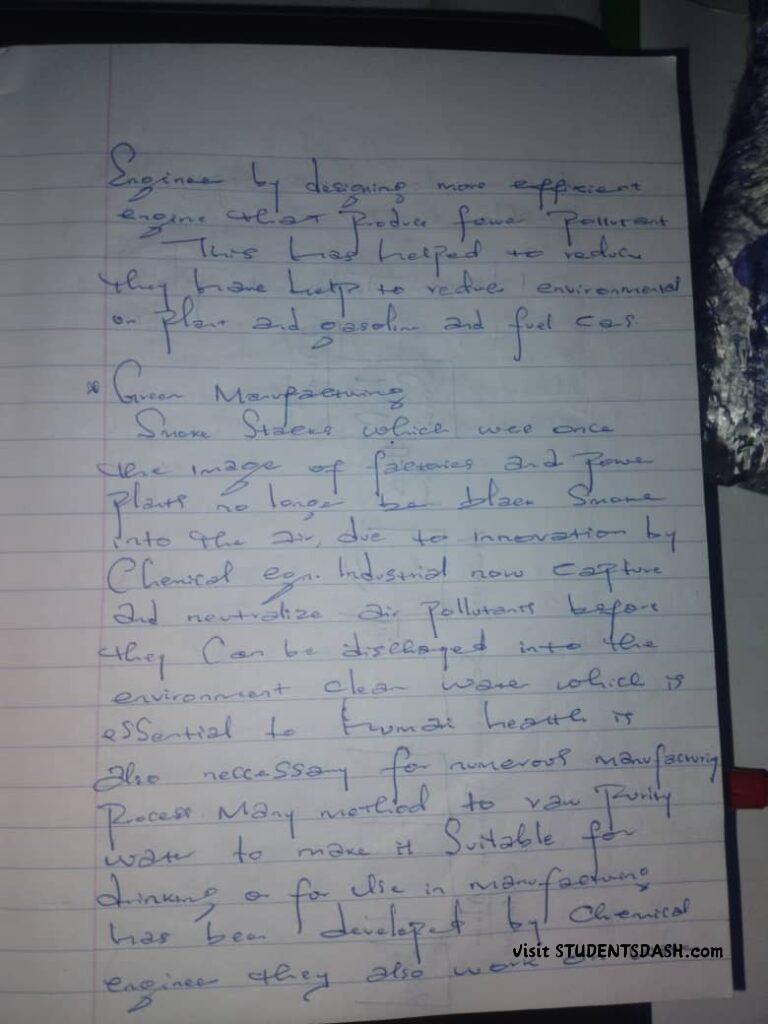 Engineer by designing more efficient
engine that produce fewer pollutant
This has helped to reduce
they have help to reduce environmental
on plant and gasoline and fuel cas.
Green Manufacturing
Smoke Stacks which were once
the image of factories and power
plants no longer be black Smoke
into the air, due to innovation by
Chemical egn. Industrial now capture
and neutralize air pollutants before
they Can be discharged into the
environment clean water which is
essential to human health is
also neccessary for numerous manufacturing
Process Many method to raw Purity
water to make it Suitable for
drinking or for use in manufacturing
has been developed by Chemical
engineer they also work on
visit STUDENTSDASH.com